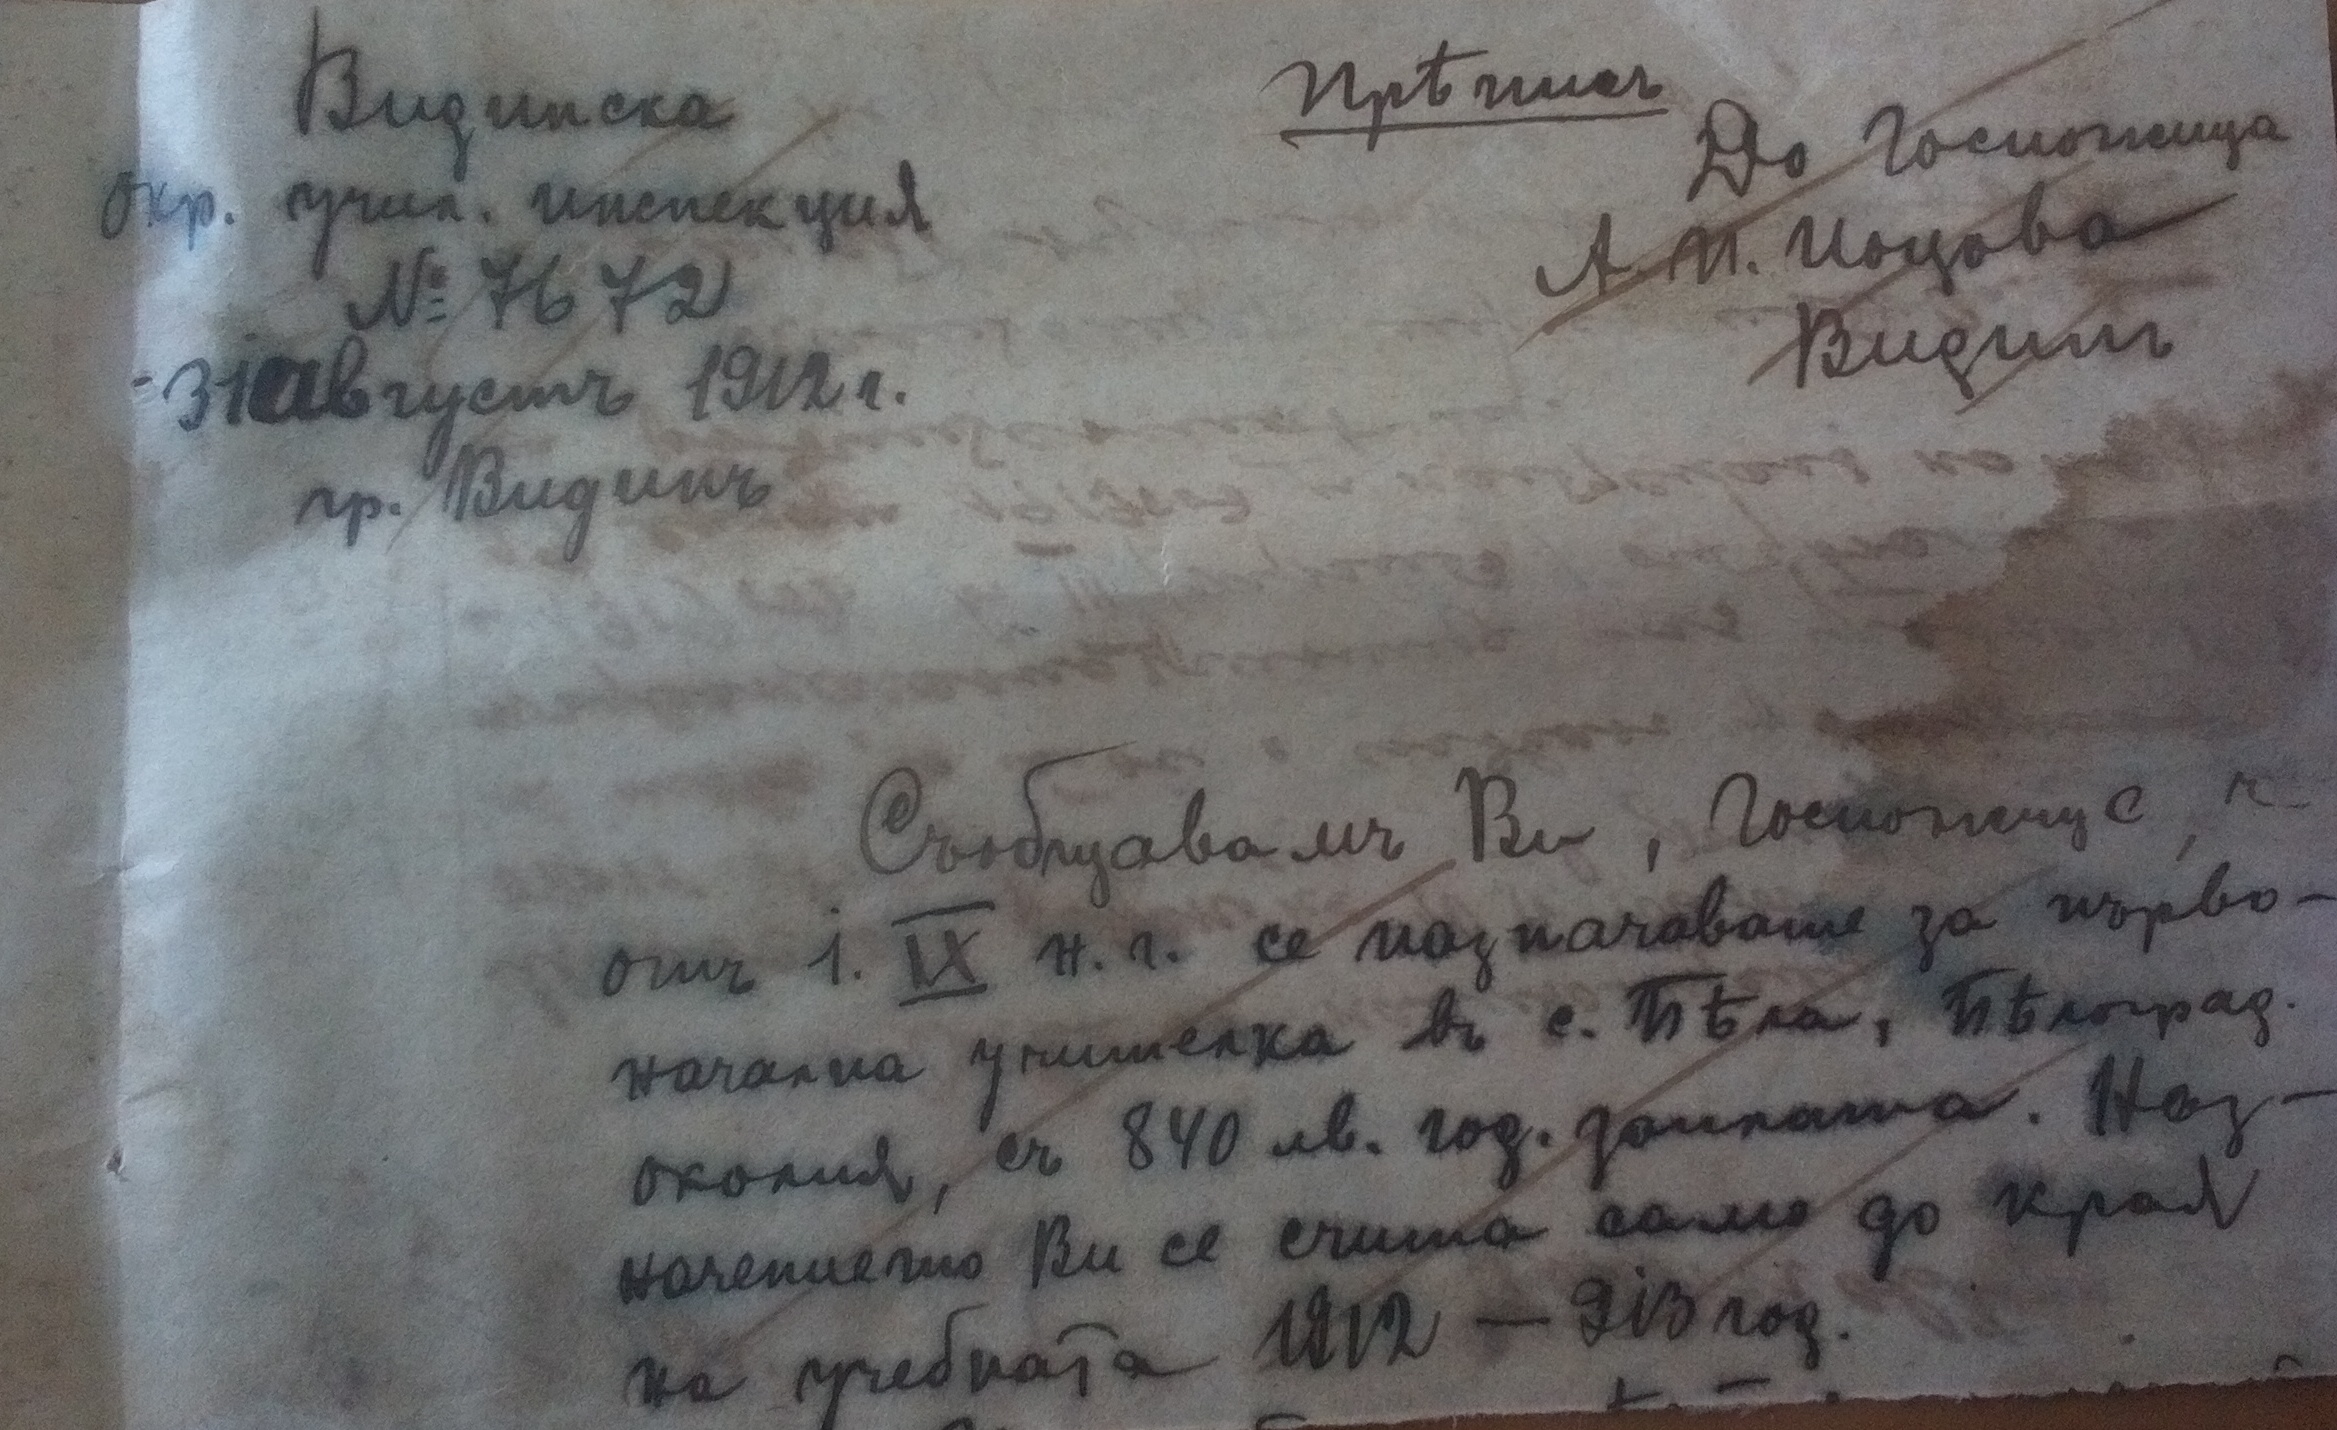 Видинска
окр. учил. инспекция
№ 7672
31 августъ 1912 г.
гр. Видинъ
Прѣписъ
До Госпожица
А. П. Цоцова
Видинъ
Съобщавамъ Ви, Госпожице, ч-
отъ 1. IX н. г. се назначавате за първо-
начална учителка въ с. Бѣла, Бѣлоград.
околия, съ 840 лв. год. заплата. Наз-
начението Ви се счита само до края
на учебната 1912 — 913 год.